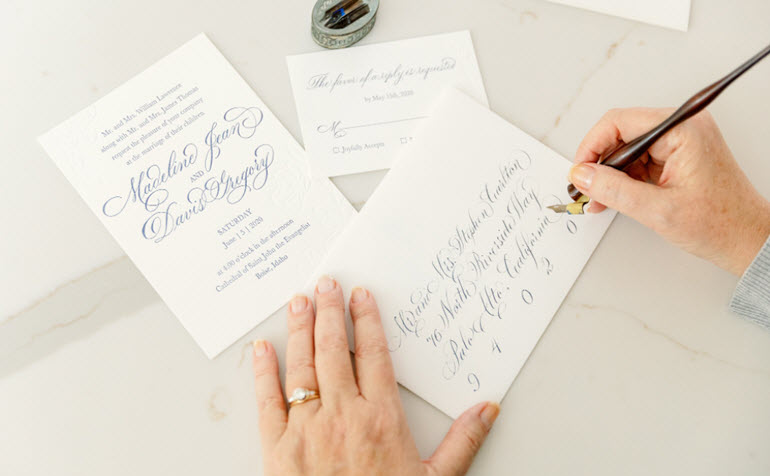 Mr. and Mrs. William Lawrence
along with Mr. and Mrs. James Thomas
request the pleasure of your company
at the marriage of their children
Madeline Jean
AND
Davis Gregory
SATURDAY
June | 3 | 2020
at 4:00 o'clock in the afternoon
Cathedral of Saint John the Evangelist
Boise, Idaho
The favor of a reply is requested
by May 15th, 2020
M
Joyfully Accepts
Mr. and Mrs. Stephen Carlton
76 North Riverside Way
Palo Alto, California
9 4 0 2 0